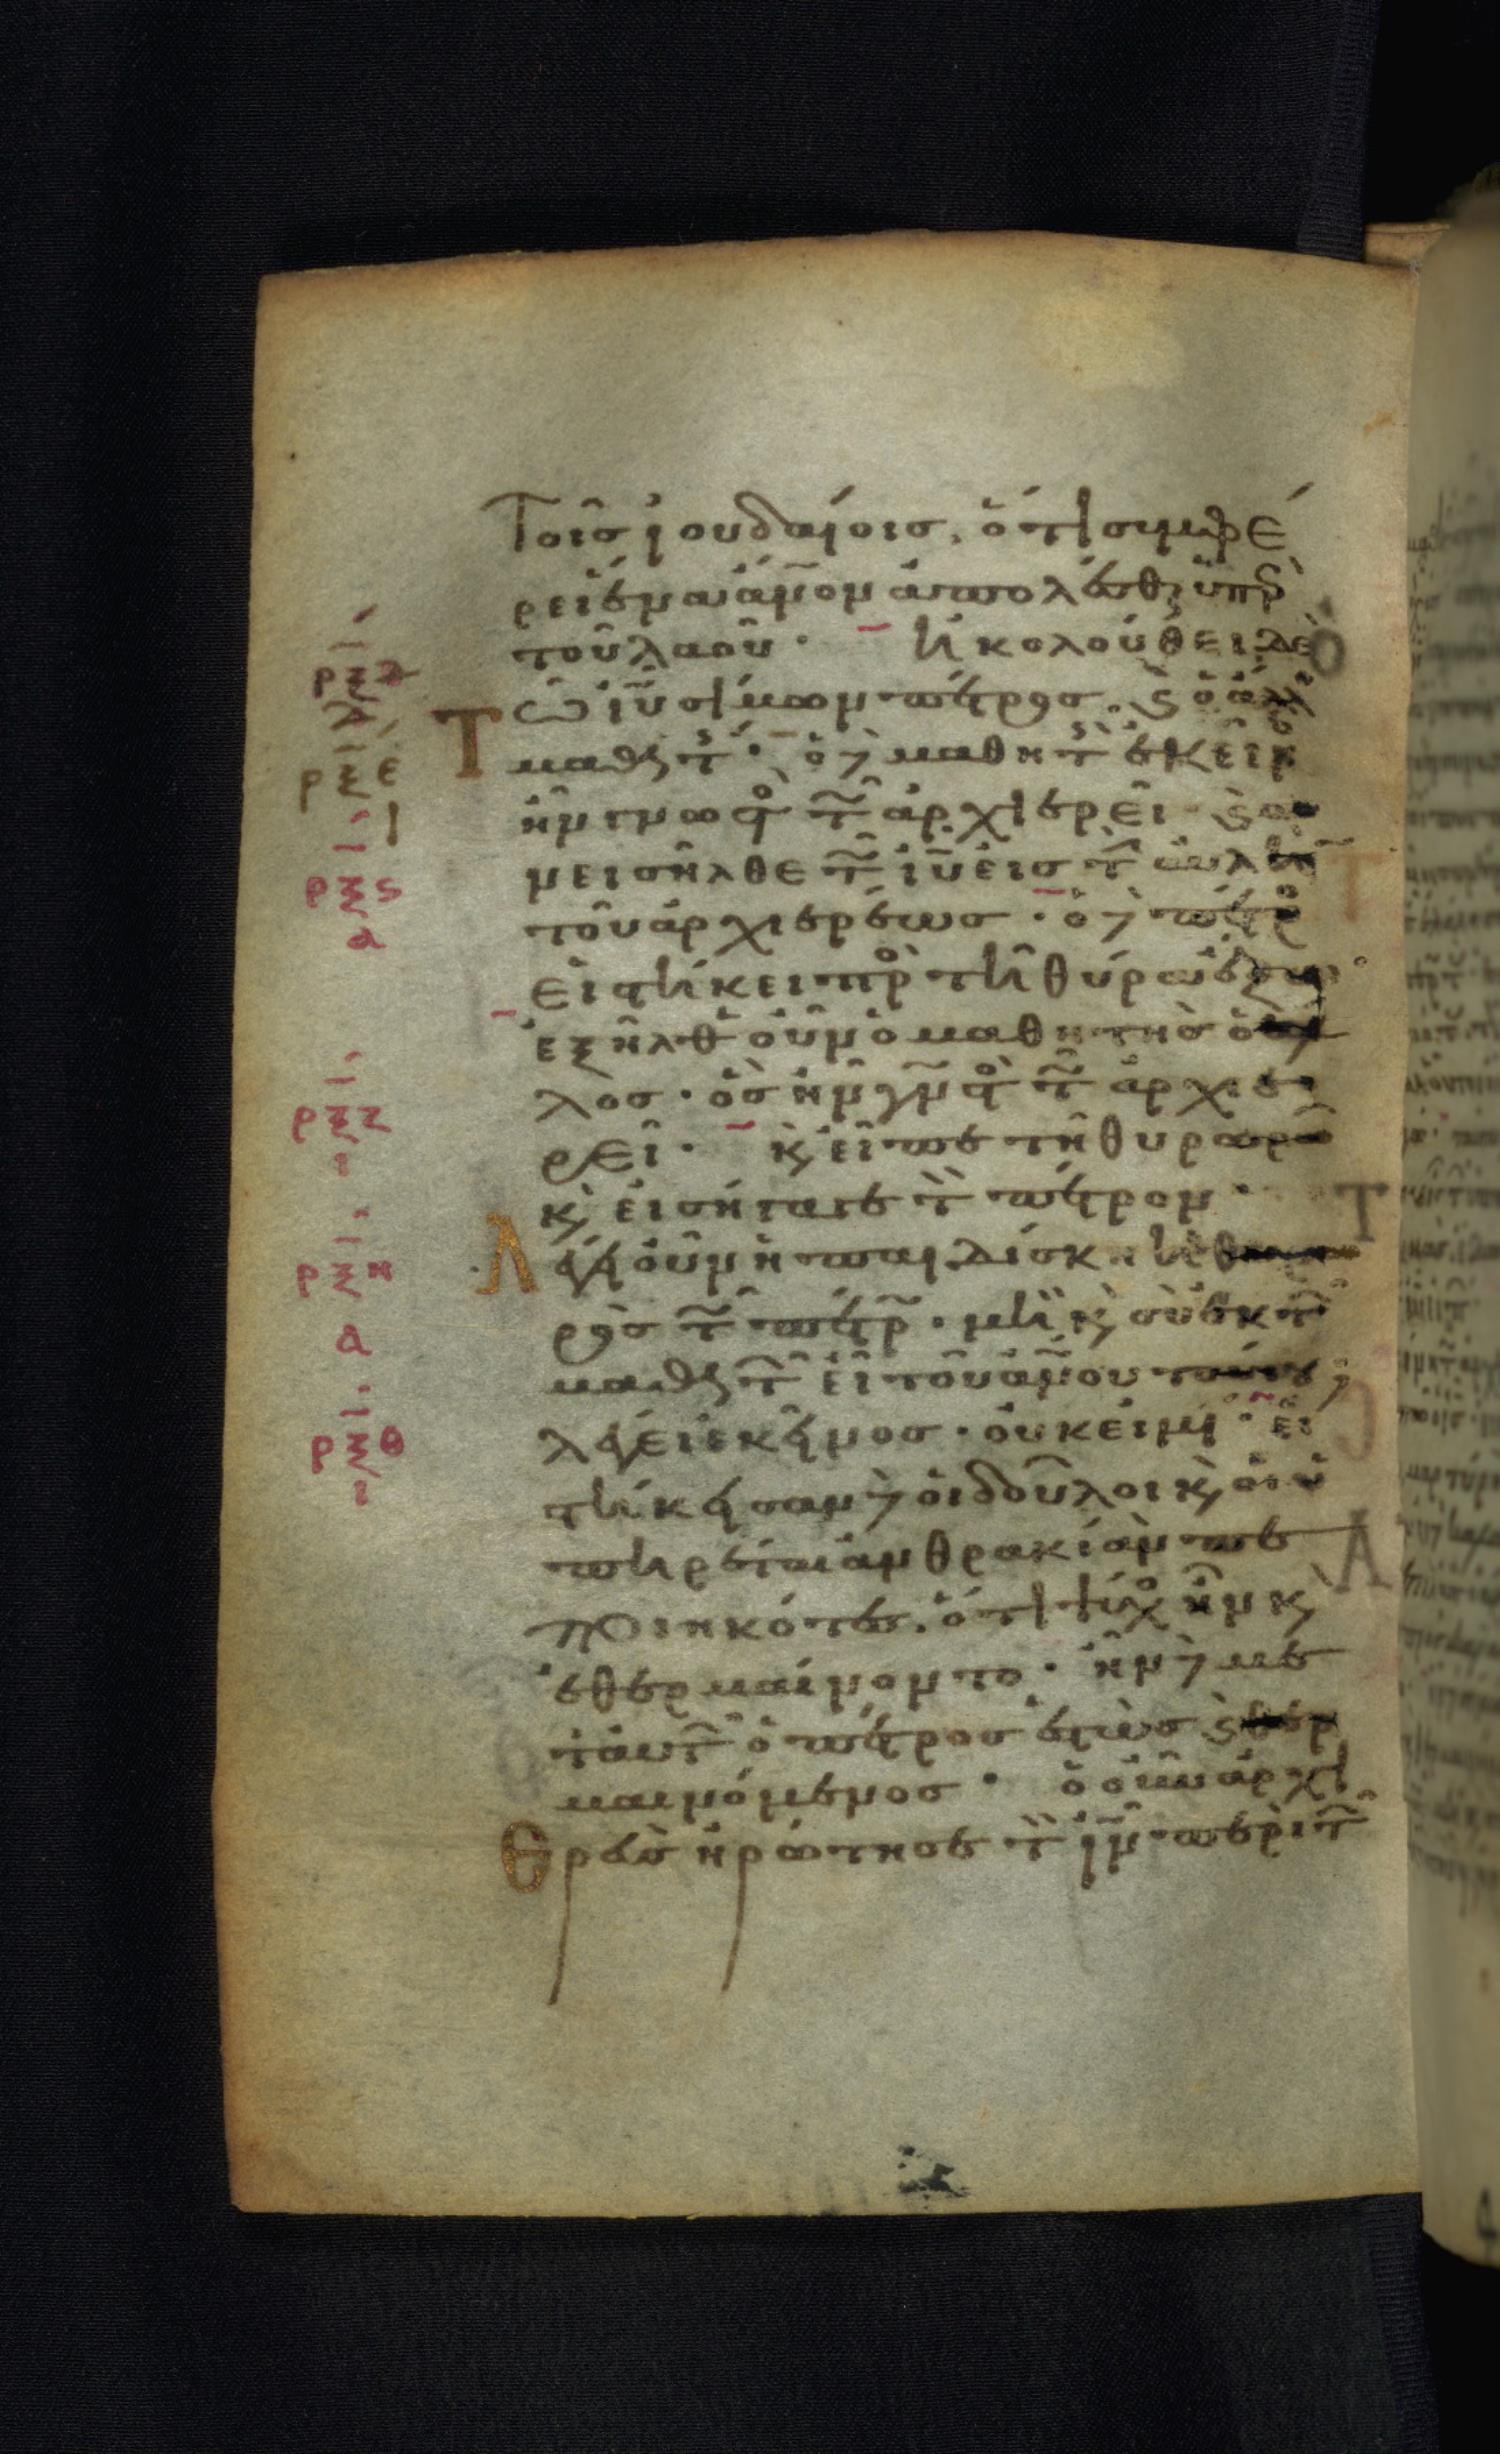 Τοῖς ἰουδαίοις, ὅτι συμφέ
ρει ἕνα ἄνον ἀπολέσθαι ὑπὲρ
τοῦ λαοῦ · ἠκολούθει δὲ
Τῶ ἰυ σίμων πέτρος. καὶ ὁ ἄλλος
μαθητής · ὁ δὲ μαθητὴς ἐκεῖν
ἦν γνωστὸς τῶ ἀρχιερεῖ καὶ συ
νεισῆλθε τῶ ἰυ εἰς τὴν αὐλὴν
τοῦ ἀρχιερέως · ὁ δὲ πέτρος
εἱστήκει πρὸς τῆ θύρα ἔξω
ἐξῆλθεν οὖν ὁ μαθητὴς ὁ ἄλ
λος · ὃς ἦν γνωστὸς τῶ ἀρχιε
ρεῖ · κ εἶπε τῆ θυρωρῶ
κ εἰσήγαγε τὸν πέτρον ·
Λέγει οὖν ἡ παιδίσκη ἡ θυρω
ρὸς τῶ πέτρω · μὴ κ σὺ ἐκ τῶν
μαθητῶν εἶ τοῦ ἀνου τούτου
λέγει ἐκεῖνος · οὐκ εἰμί · εἱ
στήκεισαν δὲ οἱ δοῦλοι κ οἱ ὑ
πηρέται ἀνθρακιὰν πε
ποιηκότες, ὅτι ψύχος ἦν κ
ἐθερμαίνοντο · ἦν δὲ με
τ αὐτῶν ὁ πέτρος ἑστὼς καὶ θερ
μαινόμενος · ὁ οὖν ἀρχι
Ερεὺς ἠρώτησε τὸν ἰν περὶ τῶν
ρξδ
δ
ρξε
ι
ρξϛ
α
ρξζ
ι
ρξη
α
ρξθ
ι